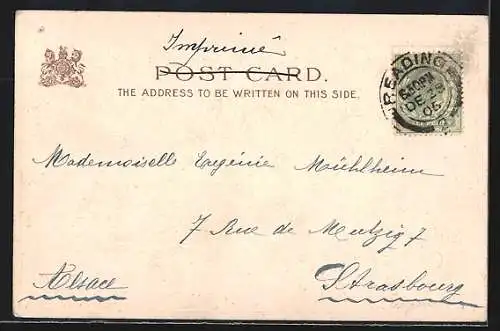 Imprimé
POST CARD.
THE ADDRESS TO BE WRITTEN ON THIS SIDE.
READING
DE
05
Mademoiselle Eugénie Mühlheim
7 Rue de Mutzig 7
Alsace
Strasbourg